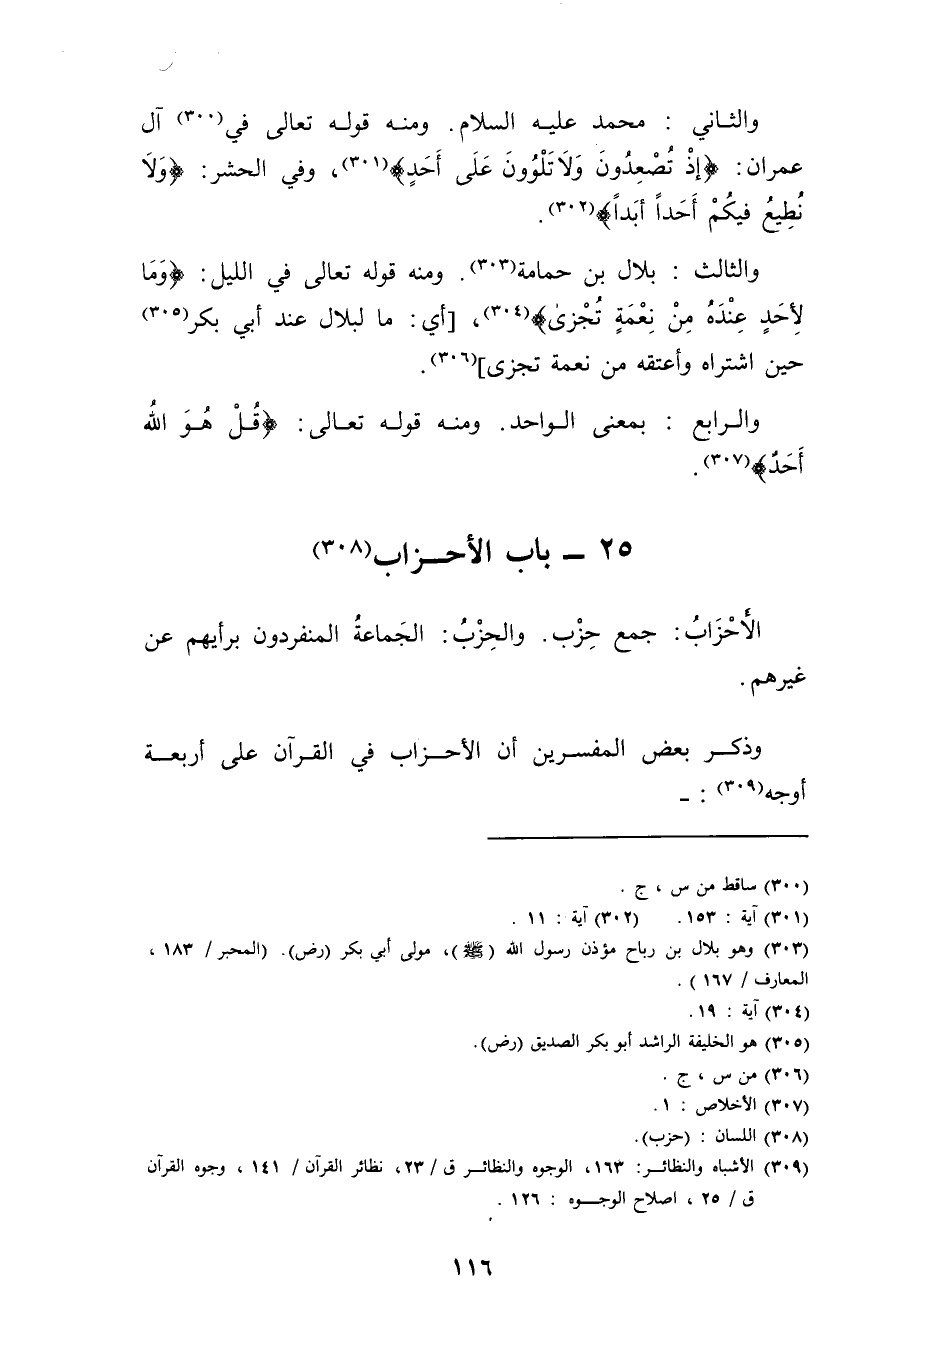 والثاني : محمد عليه السلام. ومنه قوله تعالى في(٣٠٠) آل
عمران: ﴿إِذْ تُصْعِدُونَ وَلَا تَلْوُونَ عَلَى أَحَدٍ﴾(٣٠١)، وفي الحشر: ﴿وَلَا
نُطِيعُ فيكُمْ أَحَداً أَبَداً﴾(٣٠٢).
والثالث : بلال بن حمامة(٣٠٣). ومنه قوله تعالى في الليل: ﴿وَمَا
لِأَحَدٍ عِنْدَهُ مِنْ نِعْمَةٍ تُجْزىٰ﴾(٣٠٤)، [أي: ما لبلال عند أبي بكر(٣٠٥)
حين اشتراه وأعتقه من نعمة تجزى](٣٠٦).
والرابع : بمعنى الواحد. ومنه قوله تعالى: ﴿قُلْ هُوَ اللهُ
أَحَدٌ﴾(٣٠٧).
٢٥ ــ باب الأحزاب(٣٠٨)
الأَحْزَابُ: جمع حِزْب. والحِزْبُ: الجَماعةُ المنفردون برأيهم عن
غيرهم.
وذكر بعض المفسرين أن الأحزاب في القرآن على أربعة
أوجه(٣٠٩) : ــ
(٣٠٠) ساقط من س ، ج .
(٣٠١) آية : ١٥٣. (٣٠٢) آية : ١١ .
(٣٠٣) وهو بلال بن رباح مؤذن رسول الله (ﷺ)، مولى أبي بكر (رض). (المحبر / ١٨٣ ،
المعارف / ١٦٧ ) .
(٣٠٤) آية : ١٩.
(٣٠٥) هو الخليفة الراشد أبو بكر الصديق (رض).
(٣٠٦) من س ، ج .
(٣٠٧) الأخلاص : ١.
(٣٠٨) اللسان : (حزب).
(٣٠٩) الأشباه والنظائر: ١٦٣، الوجوه والنظائر ق / ٢٣، نظائر القرآن / ١٤١ ، وجوه القرآن
ق / ٢٥ ، اصلاح الوجوه : ١٢٦ .
١١٦